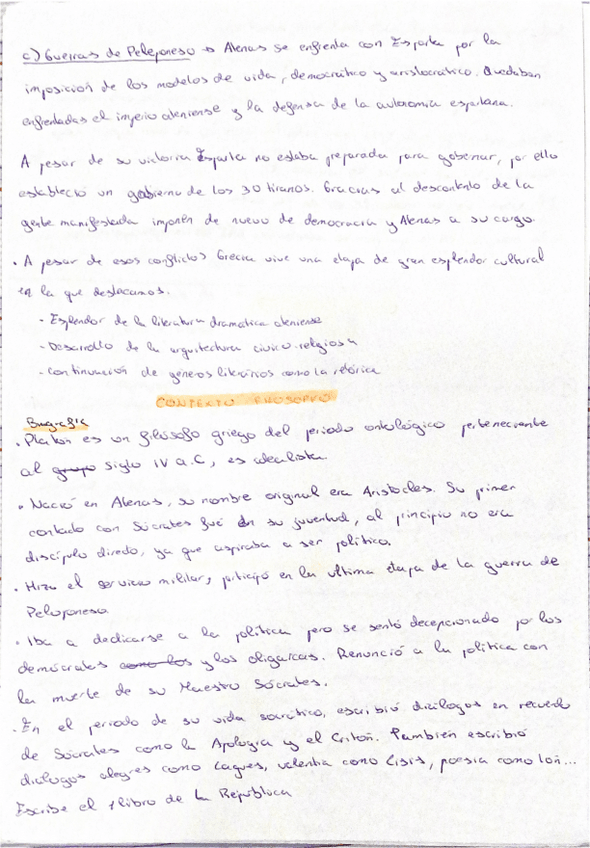 c) Guerras de Peleponeso → Atenas se enfrenta con Esparta por la
imposición de los modelos de vida, democrático y aristocrático. Quedaban
enfrentadas el imperio ateniense y la defensa de la autonomía espartana.
A pesar de su victoria Esparta no estaba preparada para gobernar, por ello
estableció un gobierno de los 30 tiranos. Gracias al descontento de la
gente manifestada imponen de nuevo de democracia y Atenas a su cargo.
• A pesar de esos conflictos Grecia vive una etapa de gran esplendor cultural
en la que destacamos.
- Esplendor de la literatura dramatica ateniense
- Desarrollo de la arquitectura civico-religiosa
- Continuación de géneros literarios como la retórica
CONTEXTO FILOSOFICO
Biografía
• Platón es un filósofo griego del periodo ontológico perteneciente
al grupo siglo IV a.C, es idealista.
• Nació en Atenas, su nombre original era Aristocles. Su primer
contacto con Sócrates fué en su juventud, al principio no era
discípulo directo, ya que aspiraba a ser político.
• Hizo el servicio militar, participó en la ultima etapa de la guerra de
Peloponeso.
• Iba a dedicarse a la política pero se sentó decepcionado por los
demócratas como los y los oligarcas. Renunció a la política con
la muerte de su Maestro Sócrates.
• En el periodo de su vida socrático, escribió diálogos en recuerdo
de Sócrates como la Apología y el Critón. También escribió
dialogos alegres como Laques, valentia como Lisis, poesia como Ion...
Escribe el 1 libro de La República